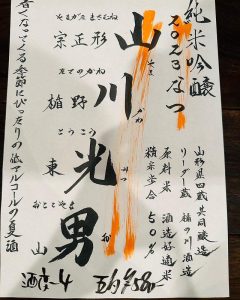 純米吟醸
2023なつ
山形県四蔵共同醸造
リーダー蔵 楯の川酒造
原料米 酒造好適米
精米歩合 50%
やま かわ みつ お
山川光男
やまがたまさむね
宗正形
たてのかわ
楯野
とうこう
東
おとこやま
山
暑くなってくる季節にぴったりの低アルコールの夏酒
酒度-4
五勺¥580-